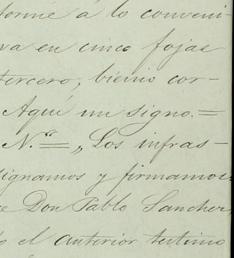 forme á lo conveni-
va en cinco fojas
tercero, bienis cor-
Aquí un signo.=
N.º= „Los infras-
signamos y firmamos
Don Pablo Sanchez
el anterior testimo